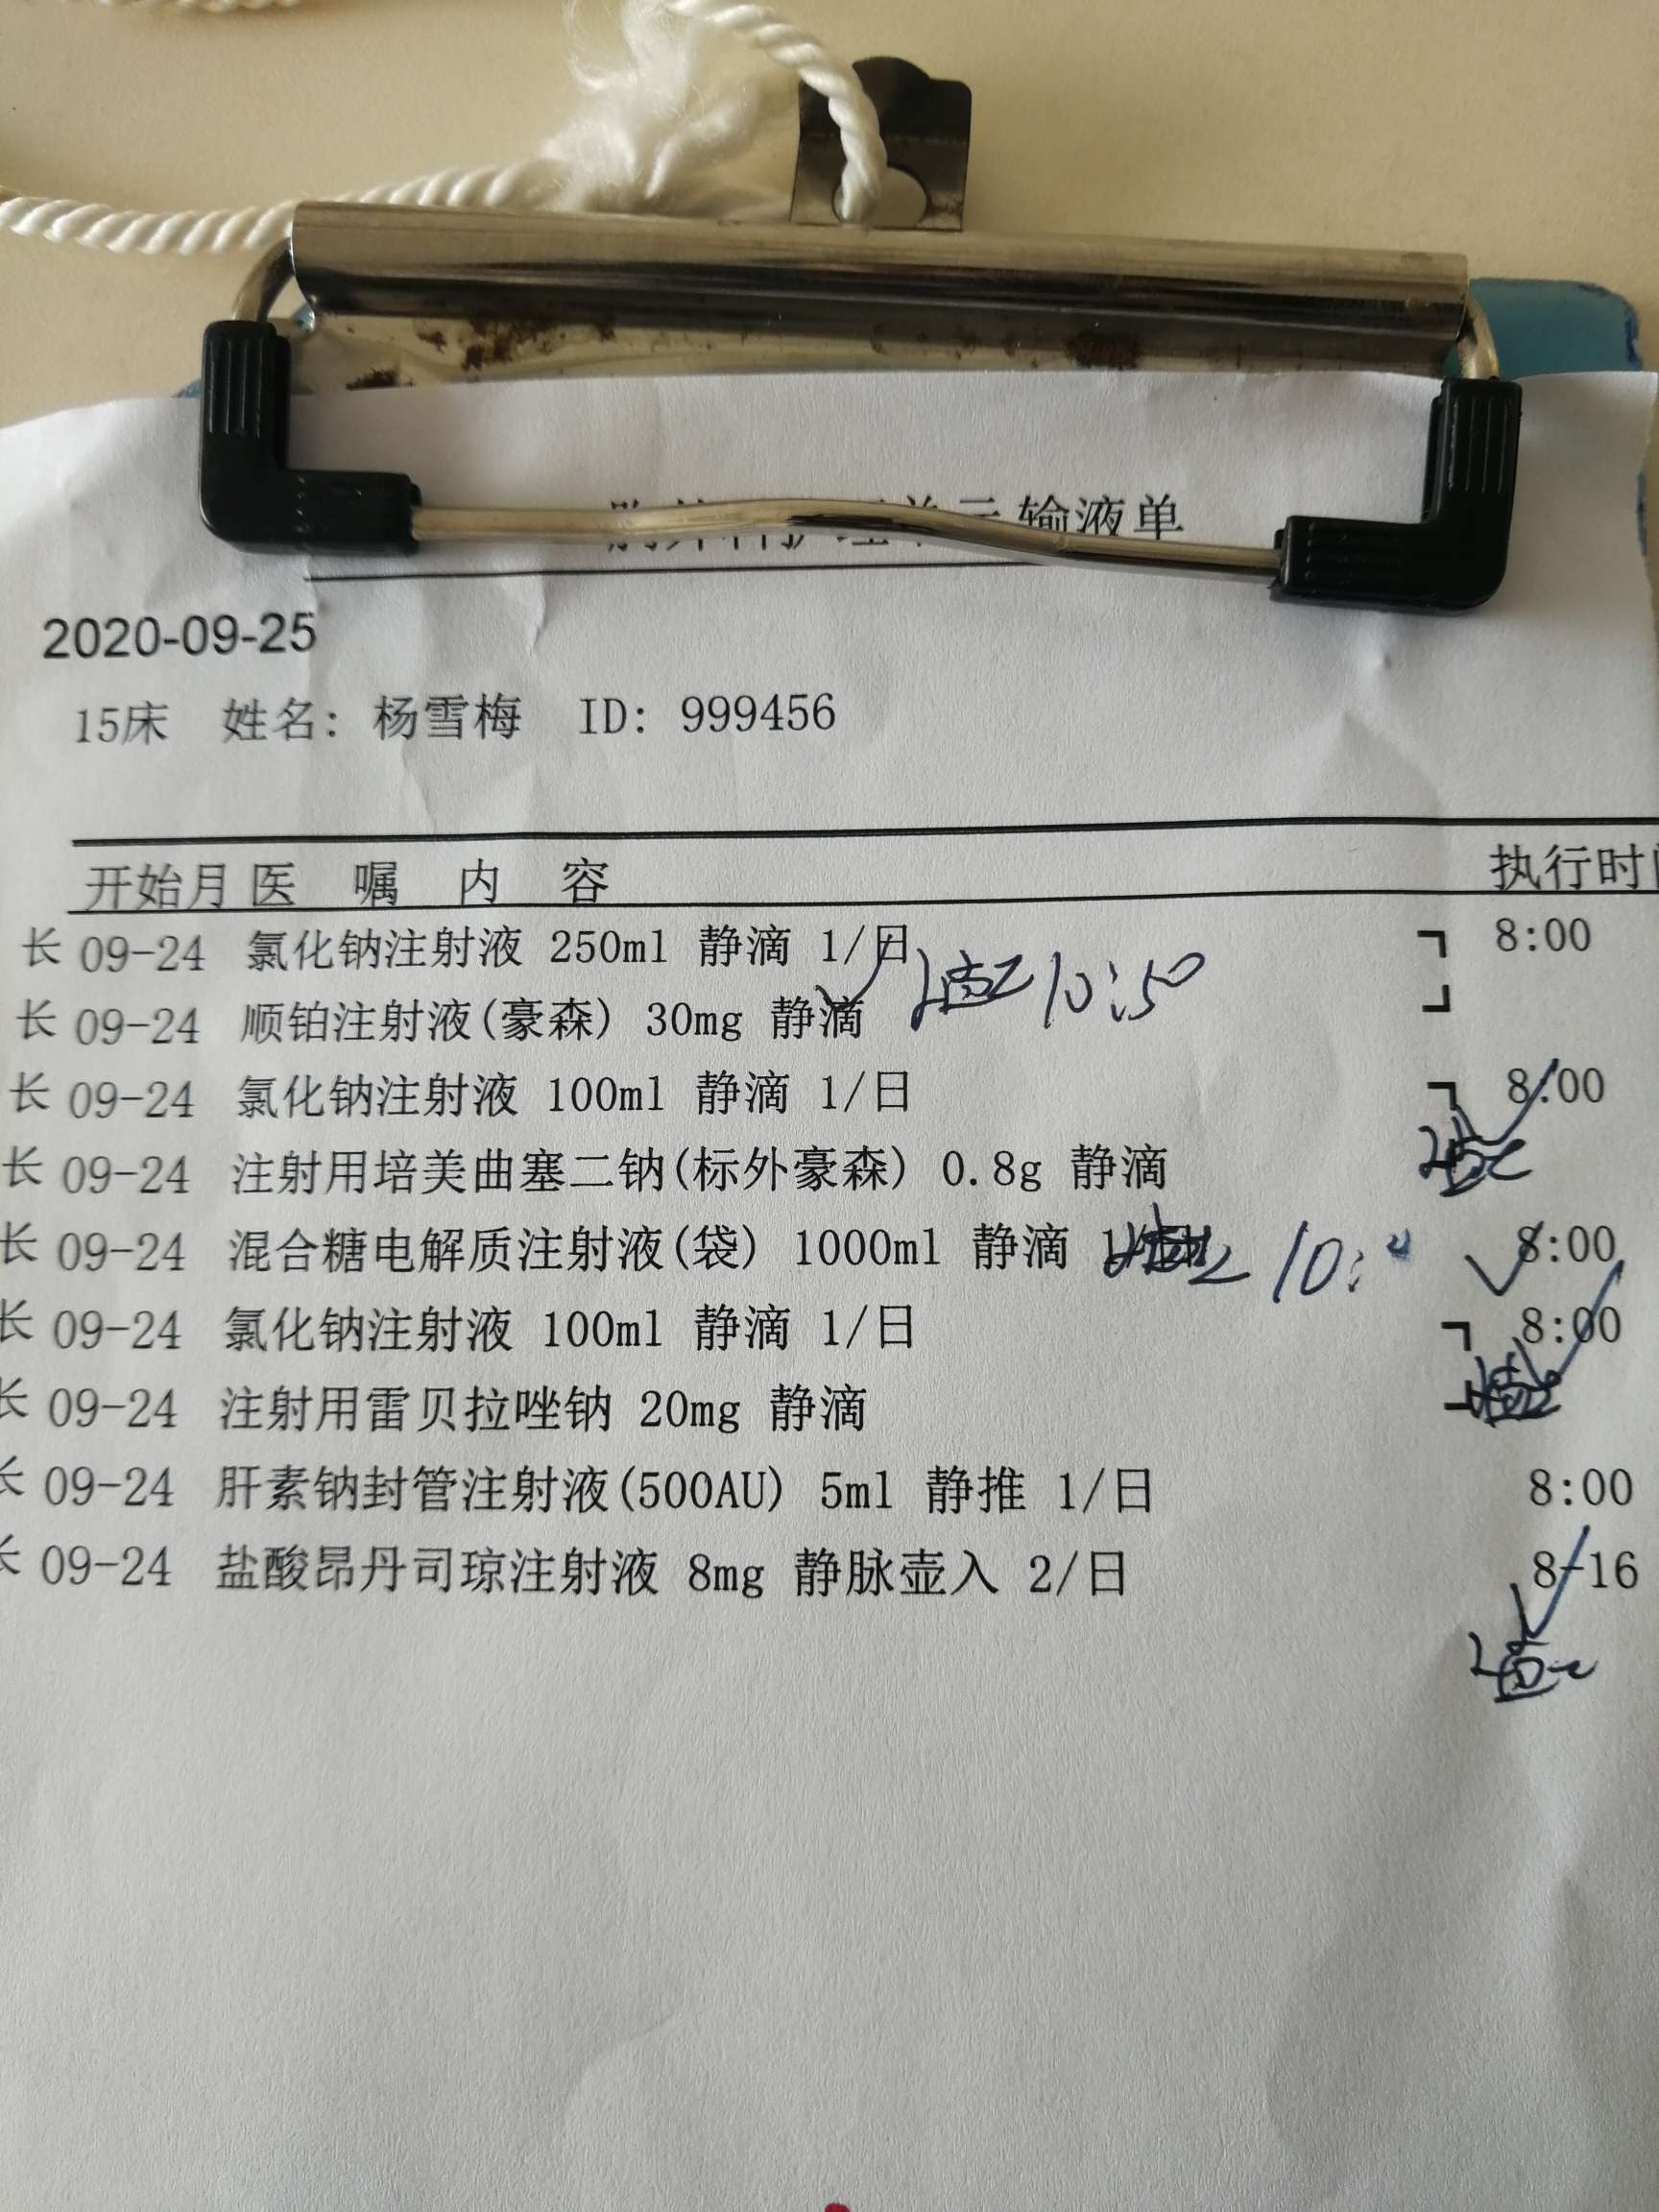 输液单
2020-09-25
15床 姓名: 杨雪梅 ID: 999456
开始月 医 嘱 内 容 执行时
长 09-24 氯化钠注射液 250ml 静滴 1/日 8:00
10:50
长 09-24 顺铂注射液(豪森) 30mg 静滴
长 09-24 氯化钠注射液 100ml 静滴 1/日 8:00
长 09-24 注射用培美曲塞二钠(标外豪森) 0.8g 静滴
长 09-24 混合糖电解质注射液(袋) 1000ml 静滴 8:00
长 09-24 氯化钠注射液 100ml 静滴 1/日 8:00
长 09-24 注射用雷贝拉唑钠 20mg 静滴
长 09-24 肝素钠封管注射液(500AU) 5ml 静推 1/日 8:00
长 09-24 盐酸昂丹司琼注射液 8mg 静脉壶入 2/日 8-16